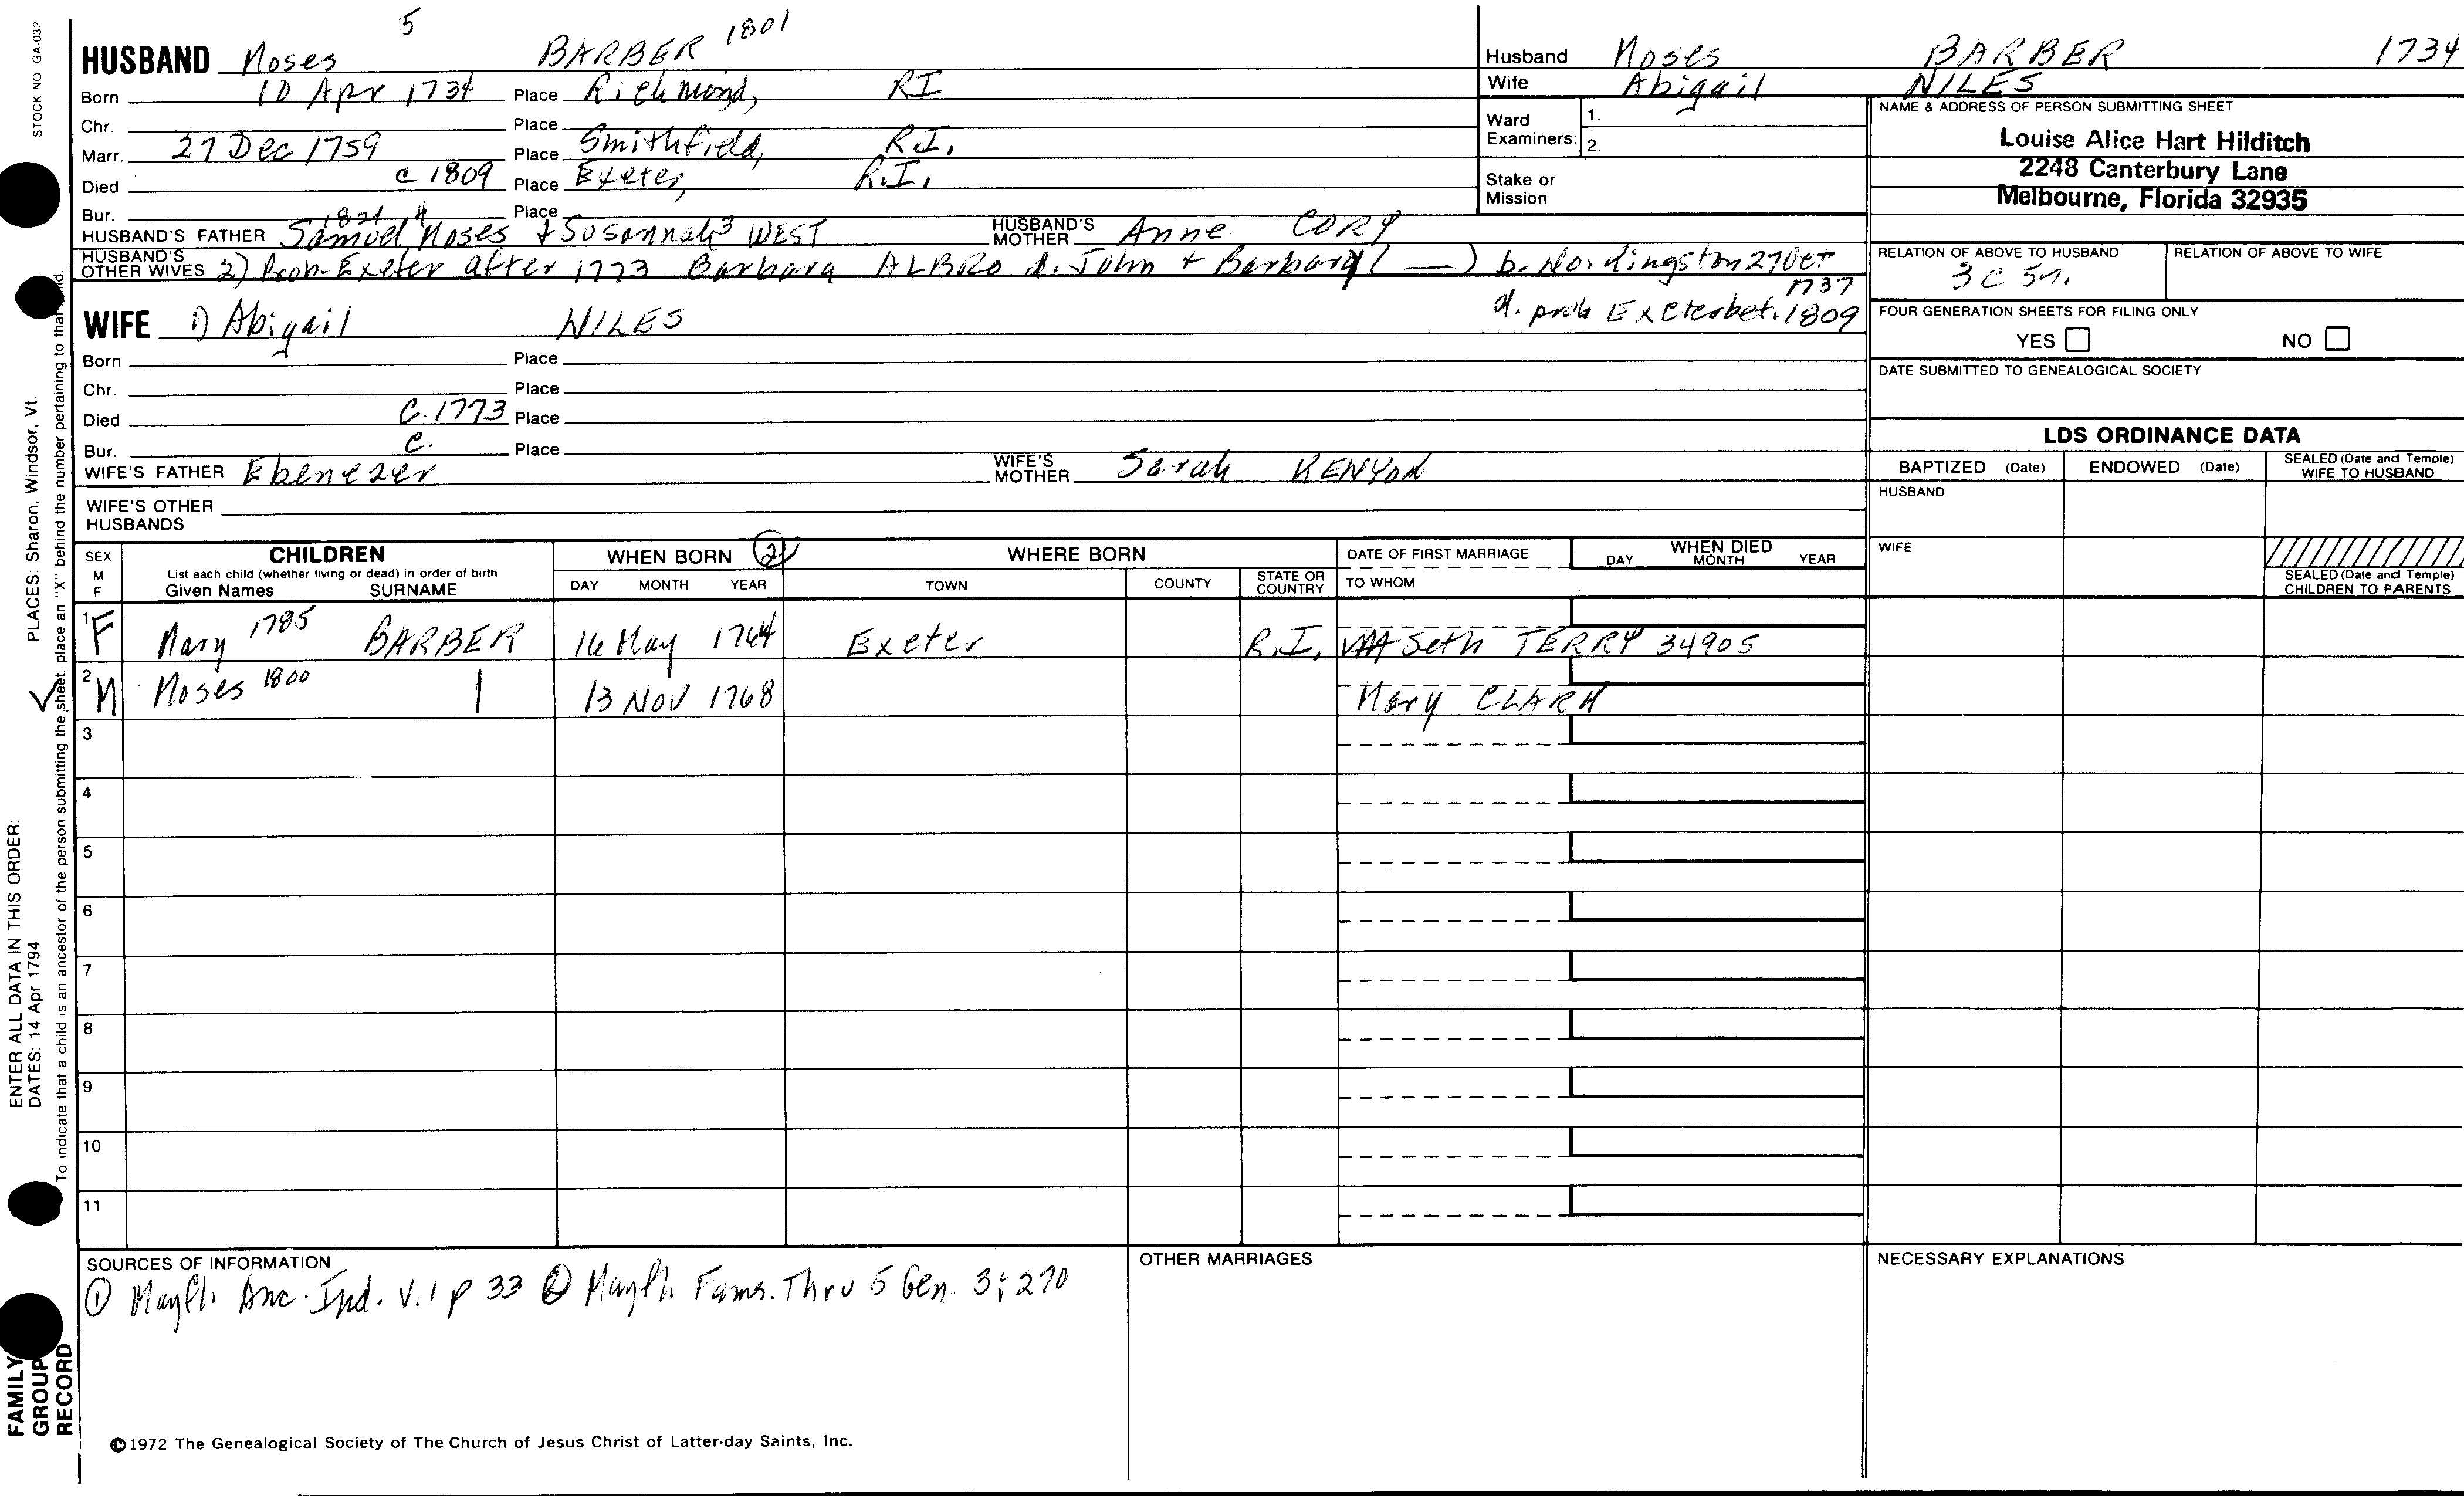 STOCK NO GA-032
5
HUSBAND Moses BARBER 1801
Born 10 Apr 1734 Place Richmond, RI
Chr. Place
Marr. 27 Dec 1759 Place Smithfield, R.I.
Died c 1809 Place Exeter, R.I.
Bur. Place
1821 4
HUSBAND'S FATHER Samuel, Moses + Susannah3 WEST HUSBAND'S MOTHER Anne CORY
HUSBAND'S OTHER WIVES 2) Prob. Exeter after 1773 Barbara ALBRO d. John + Barbary ( — ) b. No. Kingston 27 Oct 1737
d. prob Exeter bef. 1809
WIFE 1) Abigail NILES
Born Place
Chr. Place
Died C. 1773 Place
Bur. c. Place
WIFE'S FATHER Ebenezer WIFE'S MOTHER Sarah KENYON
WIFE'S OTHER HUSBANDS
Husband Moses BARBER 1734
Wife Abigail NILES
Ward Examiners: 1.
2.
Stake or Mission
NAME & ADDRESS OF PERSON SUBMITTING SHEET
Louise Alice Hart Hilditch
2248 Canterbury Lane
Melbourne, Florida 32935
RELATION OF ABOVE TO HUSBAND RELATION OF ABOVE TO WIFE
3 C 5r.
FOUR GENERATION SHEETS FOR FILING ONLY
YES NO
DATE SUBMITTED TO GENEALOGICAL SOCIETY
LDS ORDINANCE DATA
BAPTIZED (Date) ENDOWED (Date) SEALED (Date and Temple) WIFE TO HUSBAND
HUSBAND
WIFE
SEALED (Date and Temple) CHILDREN TO PARENTS
SEX M F CHILDREN WHEN BORN 2 WHERE BORN DATE OF FIRST MARRIAGE WHEN DIED
List each child (whether living or dead) in order of birth
Given Names SURNAME DAY MONTH YEAR TOWN COUNTY STATE OR COUNTRY TO WHOM DAY MONTH YEAR
1 F Mary 1785 BARBER 16 May 1764 Exeter R.I. Seth TERRY 34905
2 M Moses 1800 | 13 NOV 1768 Mary CLARK
3
4
5
6
7
8
9
10
11
SOURCES OF INFORMATION
① Mayfl. Anc. Ind. V. 1 p 33 ② Mayfl. Fams. Thru 5 Gen. 3; 270
OTHER MARRIAGES
NECESSARY EXPLANATIONS
©1972 The Genealogical Society of The Church of Jesus Christ of Latter-day Saints, Inc.
ENTER ALL DATA IN THIS ORDER:
DATES: 14 Apr 1794 PLACES: Sharon, Windsor, Vt.
To indicate that a child is an ancestor of the person submitting the sheet, place an "X" behind the number pertaining to that
FAMILY GROUP RECORD